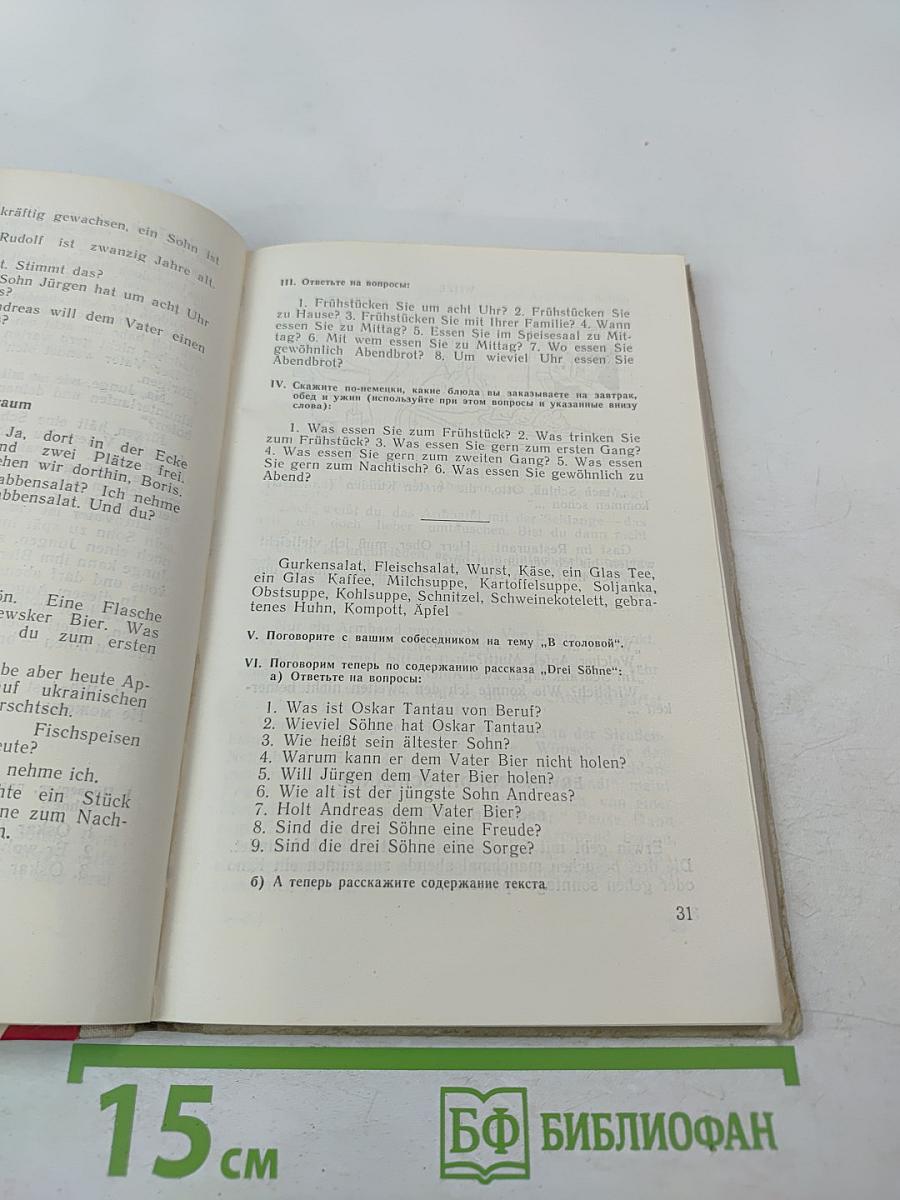 kräftig gewachsen, ein Sohn ist
Rudolf ist zwanzig Jahre alt.
t. Stimmt das?
Sohn Jürgen hat um acht Uhr
s?
dreas will dem Vater einen
?
raum
Ja, dort in der Ecke
nd zwei Plätze frei.
ehen wir dorthin, Boris.
abbensalat? Ich nehme
abbensalat. Und du?
ön. Eine Flasche
ewsker Bier. Was
du zum ersten
be aber heute Ap-
uf ukrainischen
rschtsch.
Fischspeisen
eute?
nehme ich.
hte ein Stück
ne zum Nach-
n.
III. Ответьте на вопросы:
1. Frühstücken Sie um acht Uhr? 2. Frühstücken Sie
zu Hause? 3. Frühstücken Sie mit Ihrer Familie? 4. Wann
essen Sie zu Mittag? 5. Essen Sie im Speisesaal zu Mit-
tag? 6. Mit wem essen Sie zu Mittag? 7. Wo essen Sie
gewöhnlich Abendbrot? 8. Um wieviel Uhr essen Sie
Abendbrot?
IV. Скажите по-немецки, какие блюда вы заказываете на завтрак,
обед и ужин (используйте при этом вопросы и указанные внизу
слова):
1. Was essen Sie zum Frühstück? 2. Was trinken Sie
zum Frühstück? 3. Was essen Sie gern zum ersten Gang?
4. Was essen Sie gern zum zweiten Gang? 5. Was essen
Sie gern zum Nachtisch? 6. Was essen Sie gewöhnlich zu
Abend?
Gurkensalat, Fleischsalat, Wurst, Käse, ein Glas Tee,
ein Glas Kaffee, Milchsuppe, Kartoffelsuppe, Soljanka,
Obstsuppe, Kohlsuppe, Schnitzel, Schweinekotelett, gebra-
tenes Huhn, Kompott, Äpfel
V. Поговорите с вашим собеседником на тему „В столовой“.
VI. Поговорим теперь по содержанию рассказа „Drei Söhne“:
а) Ответьте на вопросы:
1. Was ist Oskar Tantau von Beruf?
2. Wieviel Söhne hat Oskar Tantau?
3. Wie heißt sein ältester Sohn?
4. Warum kann er dem Vater Bier nicht holen?
5. Will Jürgen dem Vater Bier holen?
6. Wie alt ist der jüngste Sohn Andreas?
7. Holt Andreas dem Vater Bier?
8. Sind die drei Söhne eine Freude?
9. Sind die drei Söhne eine Sorge?
б) А теперь расскажите содержание текста.
31
15 см
БФ БИБЛИОФАН